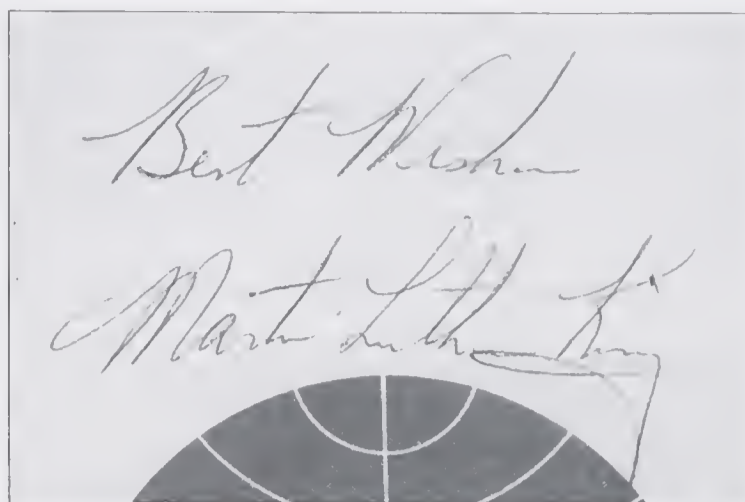 Best Wishes
Martin Luther King